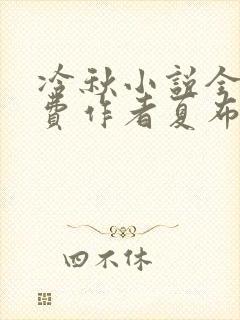 冷秋小说全
费作者夏布
四不休